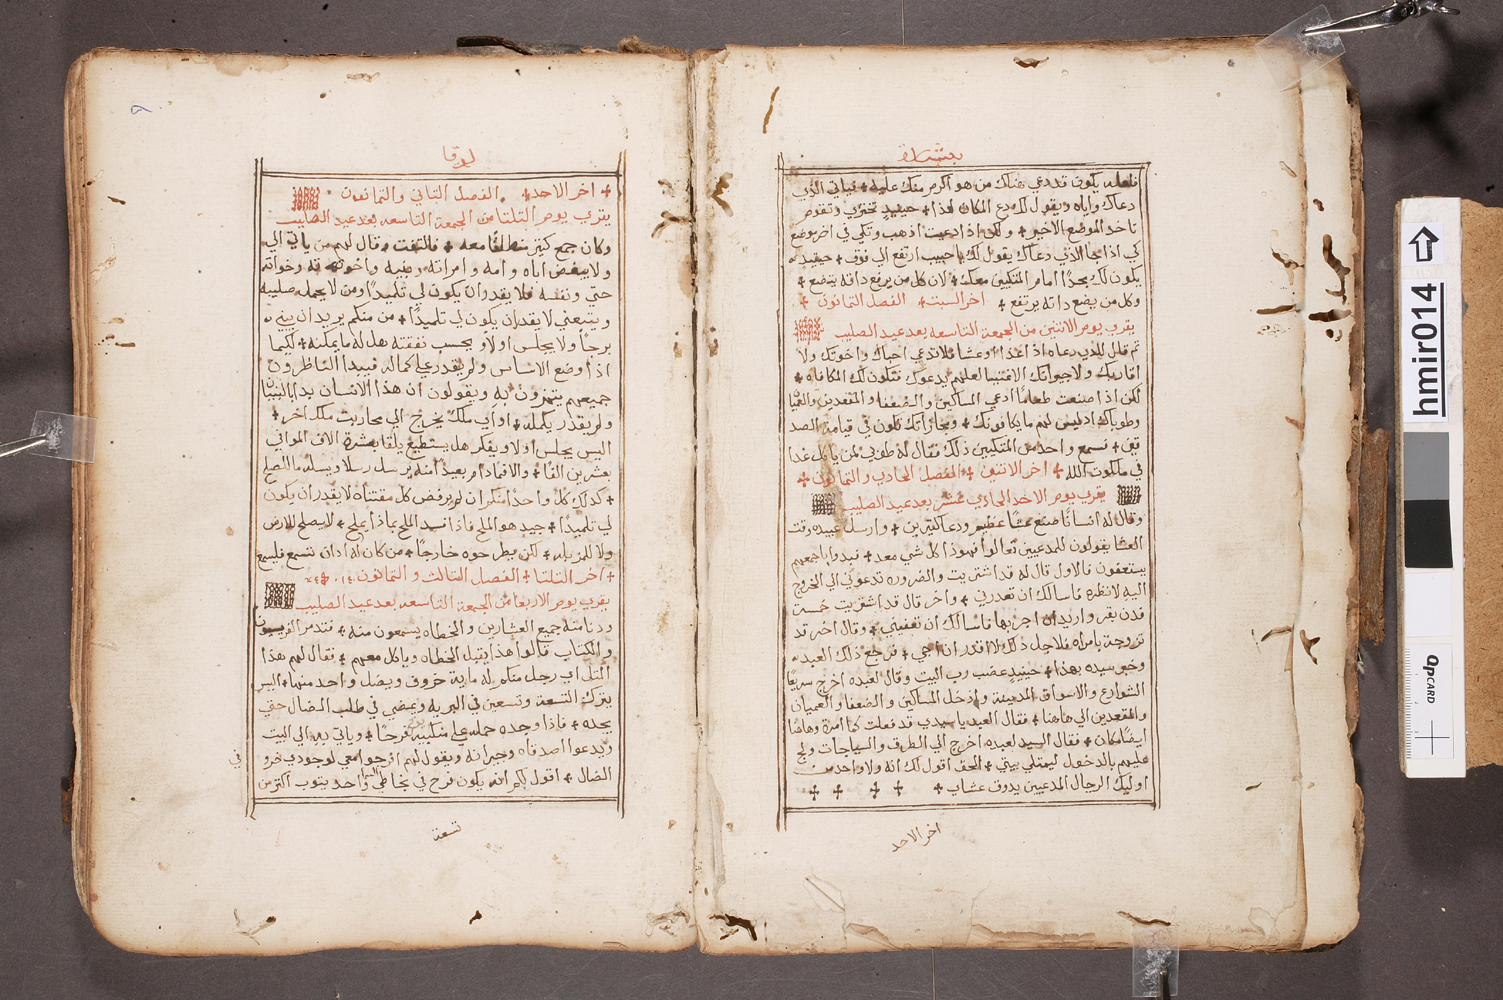 بشارة
فلعله يكون قد دعي هناك من هو اكرم منك عليه + فياتي الذي
دعاك واياه ويقول لك دع المكان لهذا + حينيد تخزي وتقوم
تاخد الموضع الاخير + ولكن اذا دعيت اذهب وتكي في اخر موضع
كي اذا جا الذي دعاك يقول لك يا حبيب ارتفع الي فوق + حينيد
يكون لك مجدًا امام المتكيين معك + لان كل من يرفع داته يتضع +
وكل من يضع داته يرتفع + اخر السبت + الفصل التمانون +
يقري يوم الاتنين من الجمعة التاسعه بعد عيد الصليب
تم قال للذي دعاه اذا غدا او عشا فلا تدعي احباك واخوتك ولا
اقاربك ولا جيرانك الاغنيا لعلهم يدعوك فتكون لك المكافاه +
لكن اذا صنعت طعامًا ادعي المساكين والضعفا والمقعدين والعميا
وطوباك اد ليس لهم ما يكافونك + ومجازاتك تكون في قيامة الصد
يقين + فسمع واحد من المتكيين ذلك فقال له طوبي لمن ياكل غدا
في ملكوت الله + اخر الاتنين + الفصل الحادي والتمانون +
يقري يوم الاحد الحادي عشر بعد عيد الصليب
وقال له انسانًا صنع عشًا عظيم ودعا كتيرين + وارسل عبيده وقت
العشا يقولون للمدعيين تعالوا فهوذا كل شي معد + فبدوا باجمعهم
يستعفون فالاول قال له قد اشتريت والضروره تدعوني الي الخروج
اليه لانظره فاسالك ان تعدرني + واخر قال قد اشتريت خمست
فدن بقر واريد ان اجربها فاسالك ان تعفيني + وقال اخر قد
تزوجة بامراه فلاجل ذلك لا اقدر ان اجي + فرجع ذلك العبد
وخبر سيده بهذا + حينيد غضب رب البيت وقال لعبده اخرج سريعًا
الشوارع والاسواق المدينة وادخل المساكين والضعفا والعميان
والمقعدين الي هاهنا + فقال العبد يا سيدي قد فعلت كما امرة وهاهنا
ايضًا مكان + فقال السيد لعبده اخرج الي الطرف والسياجات ولج
عليهم بالدخول ليمتلي بيتي + الحق اقول لك انه ولا واحد من
اوليك الرجال المدعيين يدوق عشاي + + + + +
اخر الاحد
لوقا
+ اخر الاحد + . الفصل التاني والتمانون
يقري يوم التلتا من الجمعة التاسعه بعد عيد الصليب
وكان جمع كتير منطلقًا معه + فالتفت وقال لهم من ياتي الي
ولا يبغض اباه وامه وامراته وبنيه واخوته واخواته
حتي ونفسه فلا يقدر ان يكون لي تلميدًا ومن لا يحمل صليبه
ويتبعني لا يقدر ان يكون لي تلميدًا + من منكم يريد ان يبني
برجًا ولا يجلس اولا ويحسب نفقته هل له ما يمكله + لكيما
اذا وضع الاساس ولم يقدر علي كماله فيبدا الناظرون
جميعهم يتهزون به ويقولون ان هذا الانسان بدا بالبنيان
ولم يقدر يكمله + او اي ملك يخرج الي محاربت ملك اخر +
اليس يجلس اولا ويفكر هل يستطيع يلقا بعشرة الاف الموافي
بعشرين الفًا + والا فما دام بعيدًا منه يرسل رسلا ويسله ما للصلح
+ كدلك كل واحدًا منكم ان لم يرفض كل مقتناه لا يقدر ان يكون
لي تلميدًا + جيد هو الملح فاذا فسد الملح بماذا يملح + لا يصلح للارض
ولا للمزبله + لكن يطرحوه خارجًا + من كان له ادان تسمع فليسمع
+ اخر التلتا + الفصل التالت والتمانون
يقري يوم الاربعا من الجمعة التاسعه بعد عيد الصليب
ودنا منه جميع العشارين والخطاه يسمعون منه + فتدمر الفريسيون
والكتاب قالوا هذا يقبل الخطاه وياكل معهم + فقال لهم هذا
المتل اي رجل منكم له ماية خروف ويضل واحد منها + اليس
يترك التسعة وتسعين في البريه ويمضي في طلب الضال حتي
يجده + فاذا وجده حمله علي منكبيه فرحًا + وياتي به الي البيت
ويدعوا اصدقاه وجيرانه ويقول لهم افرحوا معي لوجودي خروفي
الضال + اقول لكم انه يكون فرح في السما بخاطي واحد يتوب اكتر من
تسعة